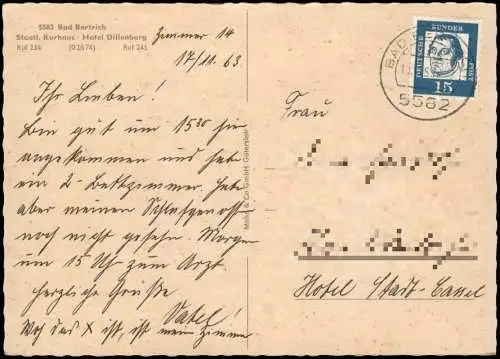 5582 Bad Bertrich
Staatl. Kurhaus · Hotel Dillenburg
Ruf 234 (02674) Ruf 245
Zimmer 14
17/11. 63
Ihr Lieben!
Bin gut um 15³⁰ hier
angekommen und habe
ein 2-Bettzimmer. Habe
aber meinen Schlafgenossen
noch nicht gesehen. Morgen
um 15 Uhr zum Arzt.
Herzliche Grüße
Vatel!
Wo das X ist, ist mein Zimmer
Frau
Hotel Stadt-Cassel
DEUTSCHE BUNDESPOST
15
BAD
5582